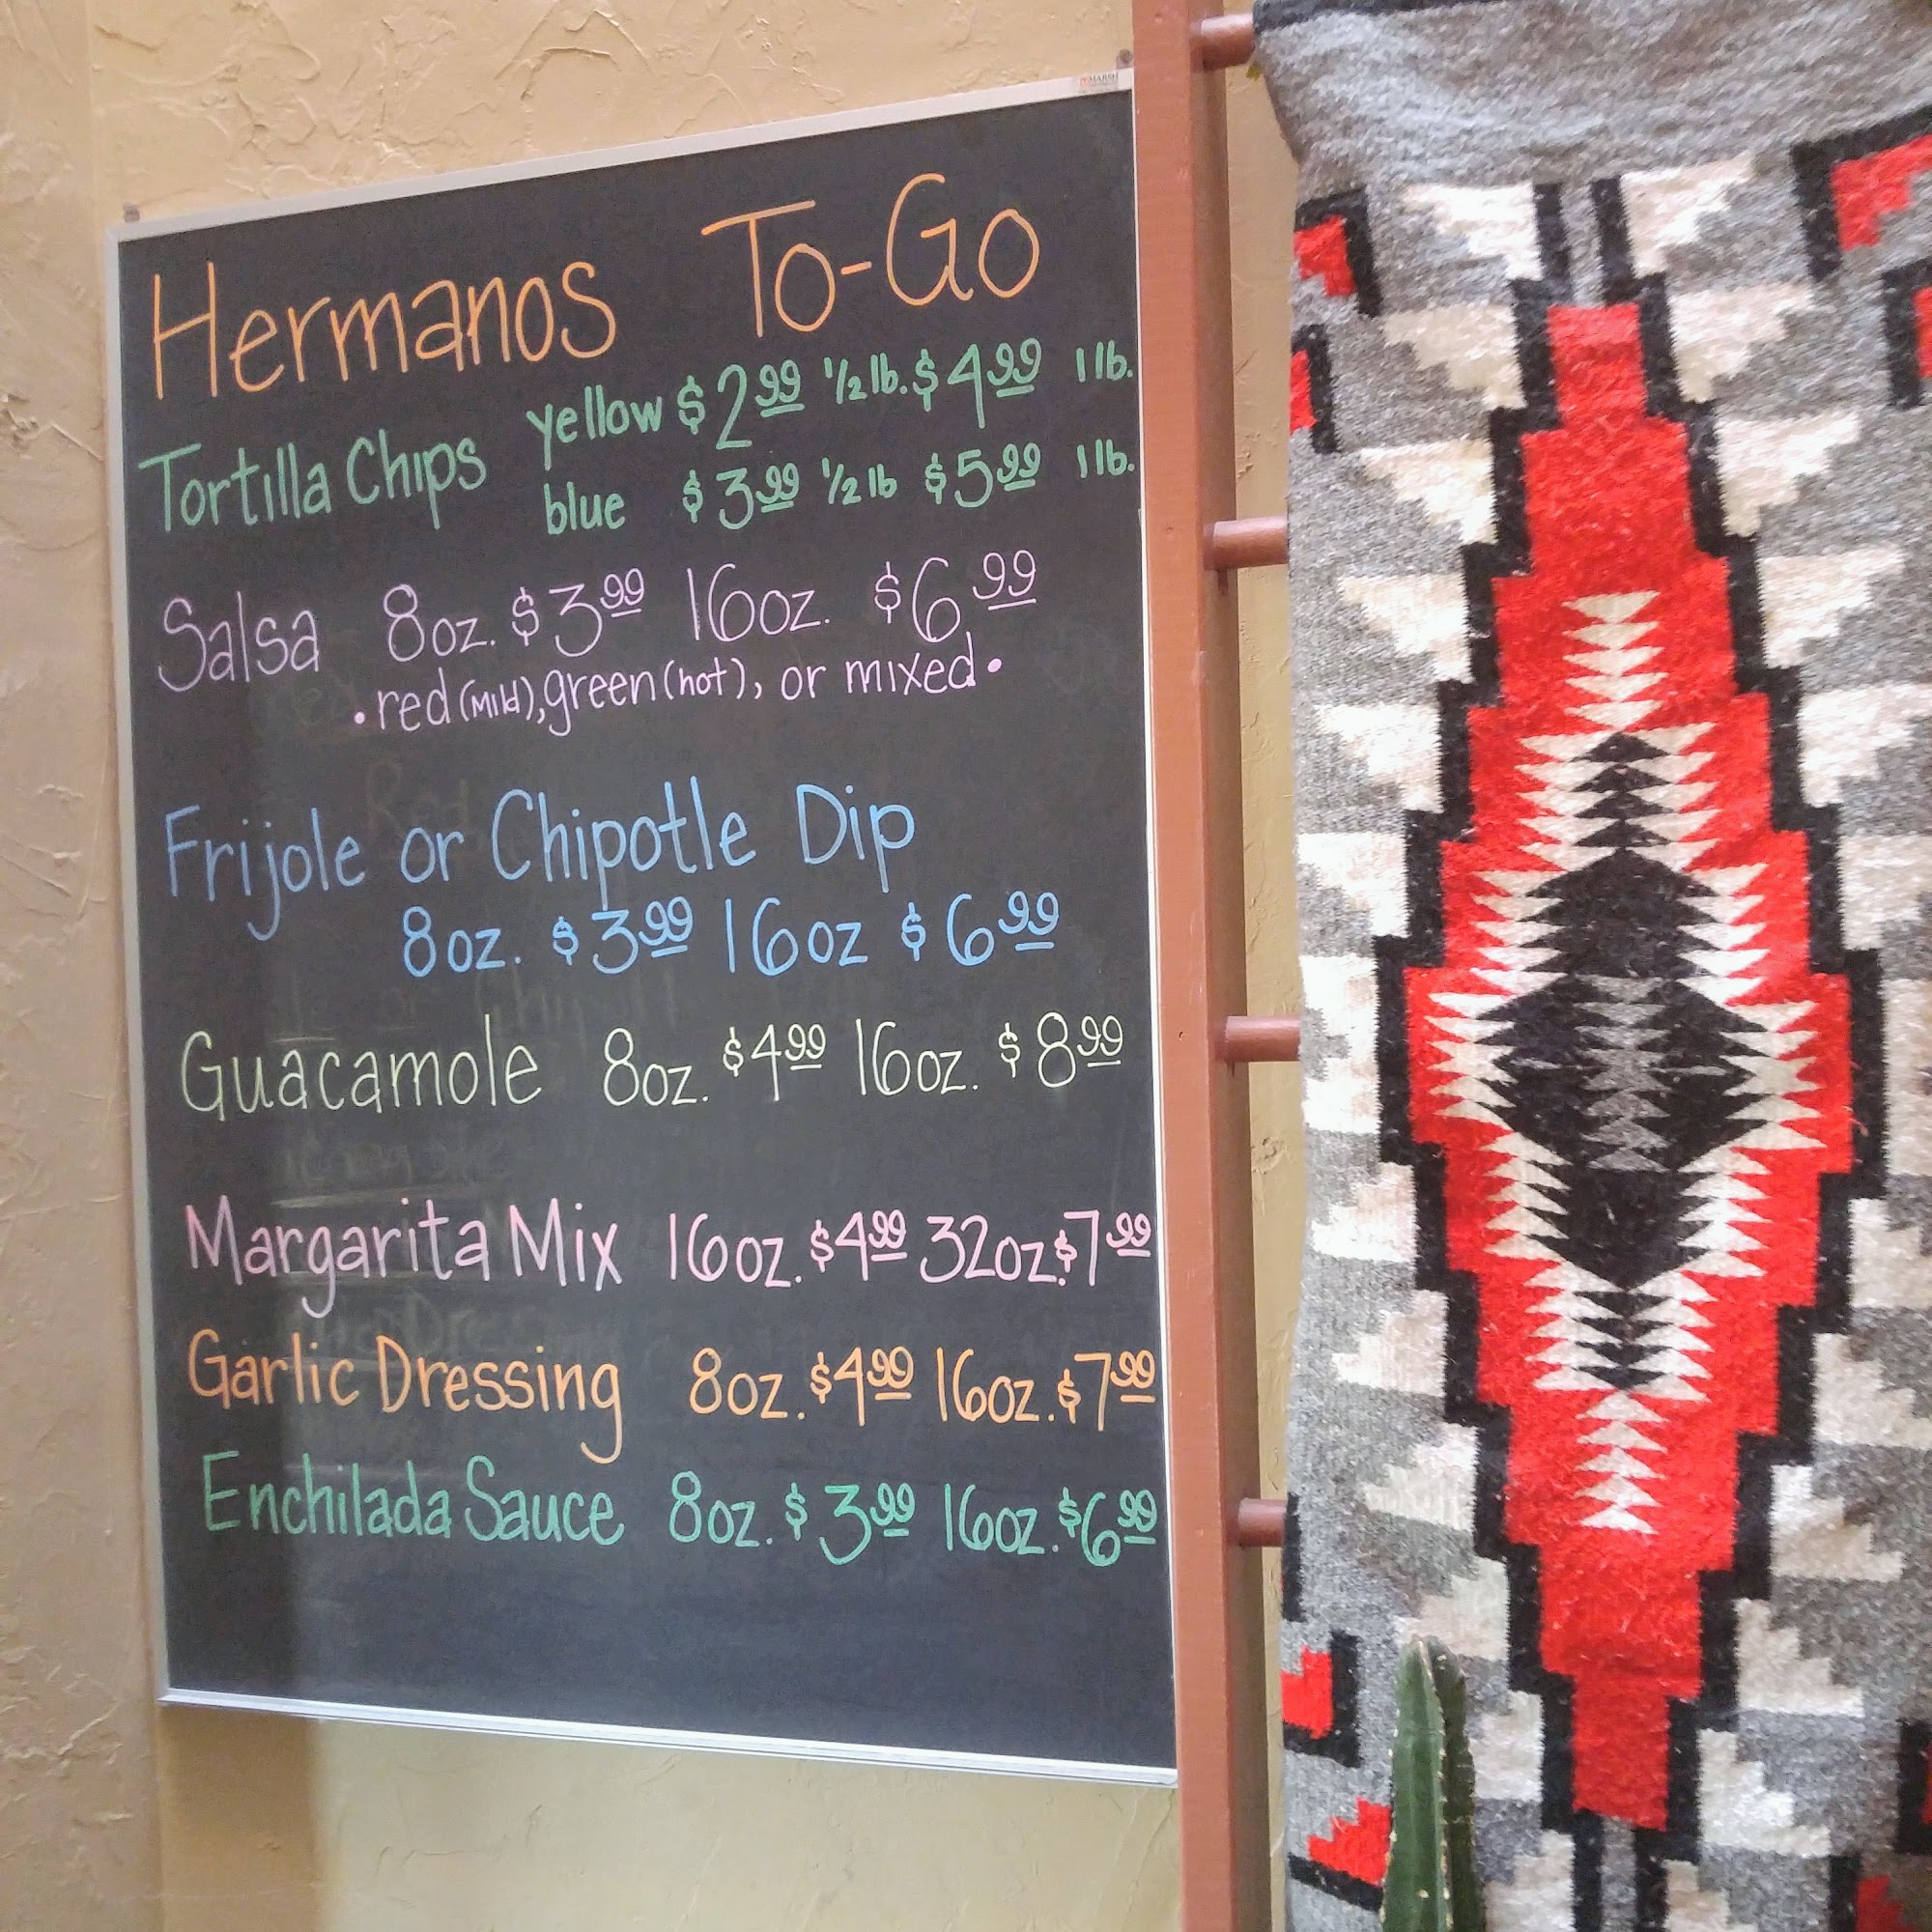 MARSH
Hermanos To-Go
Tortilla Chips yellow $2.99 1/2 lb. $4.99 1 lb.
blue $3.99 1/2 lb $5.99 1 lb.
Salsa 8oz. $3.99 16oz. $6.99
• red (Mild), green (hot), or mixed •
Frijole or Chipotle Dip
8oz. $3.99 16oz $6.99
Guacamole 8oz. $4.99 16oz. $8.99
Margarita Mix 16oz. $4.99 32oz. $7.99
Garlic Dressing 8oz. $4.99 16oz. $7.99
Enchilada Sauce 8oz. $3.99 16oz. $6.99